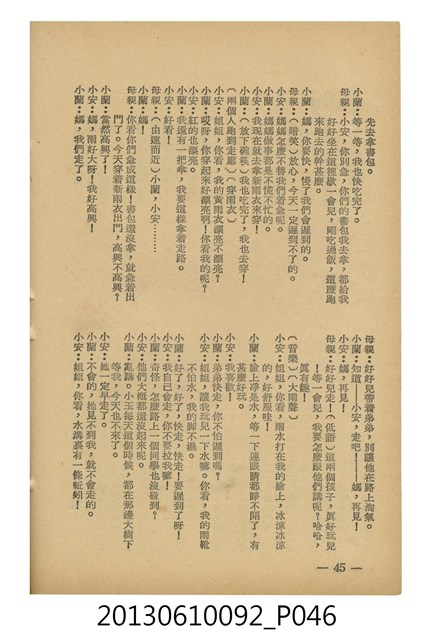 先去拿書包。
小蘭：等一等，我也快吃完了。
母親：小安，你別急，你們的書包我去拿，都給我
好好坐在這裡歇一會兒，剛吃過飯，這麼跑
來跑去的幹甚麼。
小蘭：媽，你要快，慢了我們會遲到的。
母親：（嗤笑）放心，今天一定遲到不了的。
小安：媽媽怎麼不替我們着急呢。
小蘭：媽媽做事都是不慌不忙的。
小安：我現在就去拿新雨衣來穿！
小蘭：（放下碗筷）我也吃完了，我也去穿！
（兩個人跑到走廊）（穿雨衣）
小安：姐姐，你看，我的黃雨衣漂亮不漂亮？
小蘭：哎呀，你穿起來好漂亮啊！你看我的呢？
小安：紅的也漂亮。
小蘭：我還有一把傘，我要這樣拿着走路。
小安：好看！
母親：（由遠而近）小蘭，小安………
小蘭：媽！
母親：你看你們急成這樣！書包還沒拿，就急着出
門了。今天穿着新雨衣出門，高興不高興？
小蘭：當然高興了！
小安：媽，雨好大呀！我好高興！
小蘭：媽，我們走了。
母親：好好兒帶着弟弟，別讓他在路上淘氣。
小蘭：知道——小安，走吧！——媽，再見！
小安：媽，再見！
母親：好好兒走！（低語）這兩個孩子，真好玩兒
！等一會兒，我要怎麼跟他們講呢？哈哈，
真有趣！
（音樂）（大雨聲）
小安：姐姐，你看，雨水打在我的臉上，冰凉冰凉
的，好舒服哇！
小蘭：臉上淨是水，等一下連眼睛都睜不開了，有
甚麼好玩。
小安：我喜歡！
小蘭：弟弟快走，你不怕遲到嗎？
小安：姐姐，讓我玩兒一下水嘛。你看，我的雨靴
不怕水，我的脚不濕。
小蘭：好了，好了，快走，快走！要遲到了呀！
小安：我自己會走，你不要拉我嘛！
小蘭：奇怪，怎麼路上一個同學也沒碰到？
小安：他們大概都還沒起來呢。
小蘭：亂講。小玉每天這個時候，都在那邊大樹下
等我，今天也不來了。
小安：她一定早走了。
小蘭：不會的，她見不到我，就不會走的。
小安：姐姐，你看，水溝裏有一條蚯蚓！
— 45 —
20130610092_P046